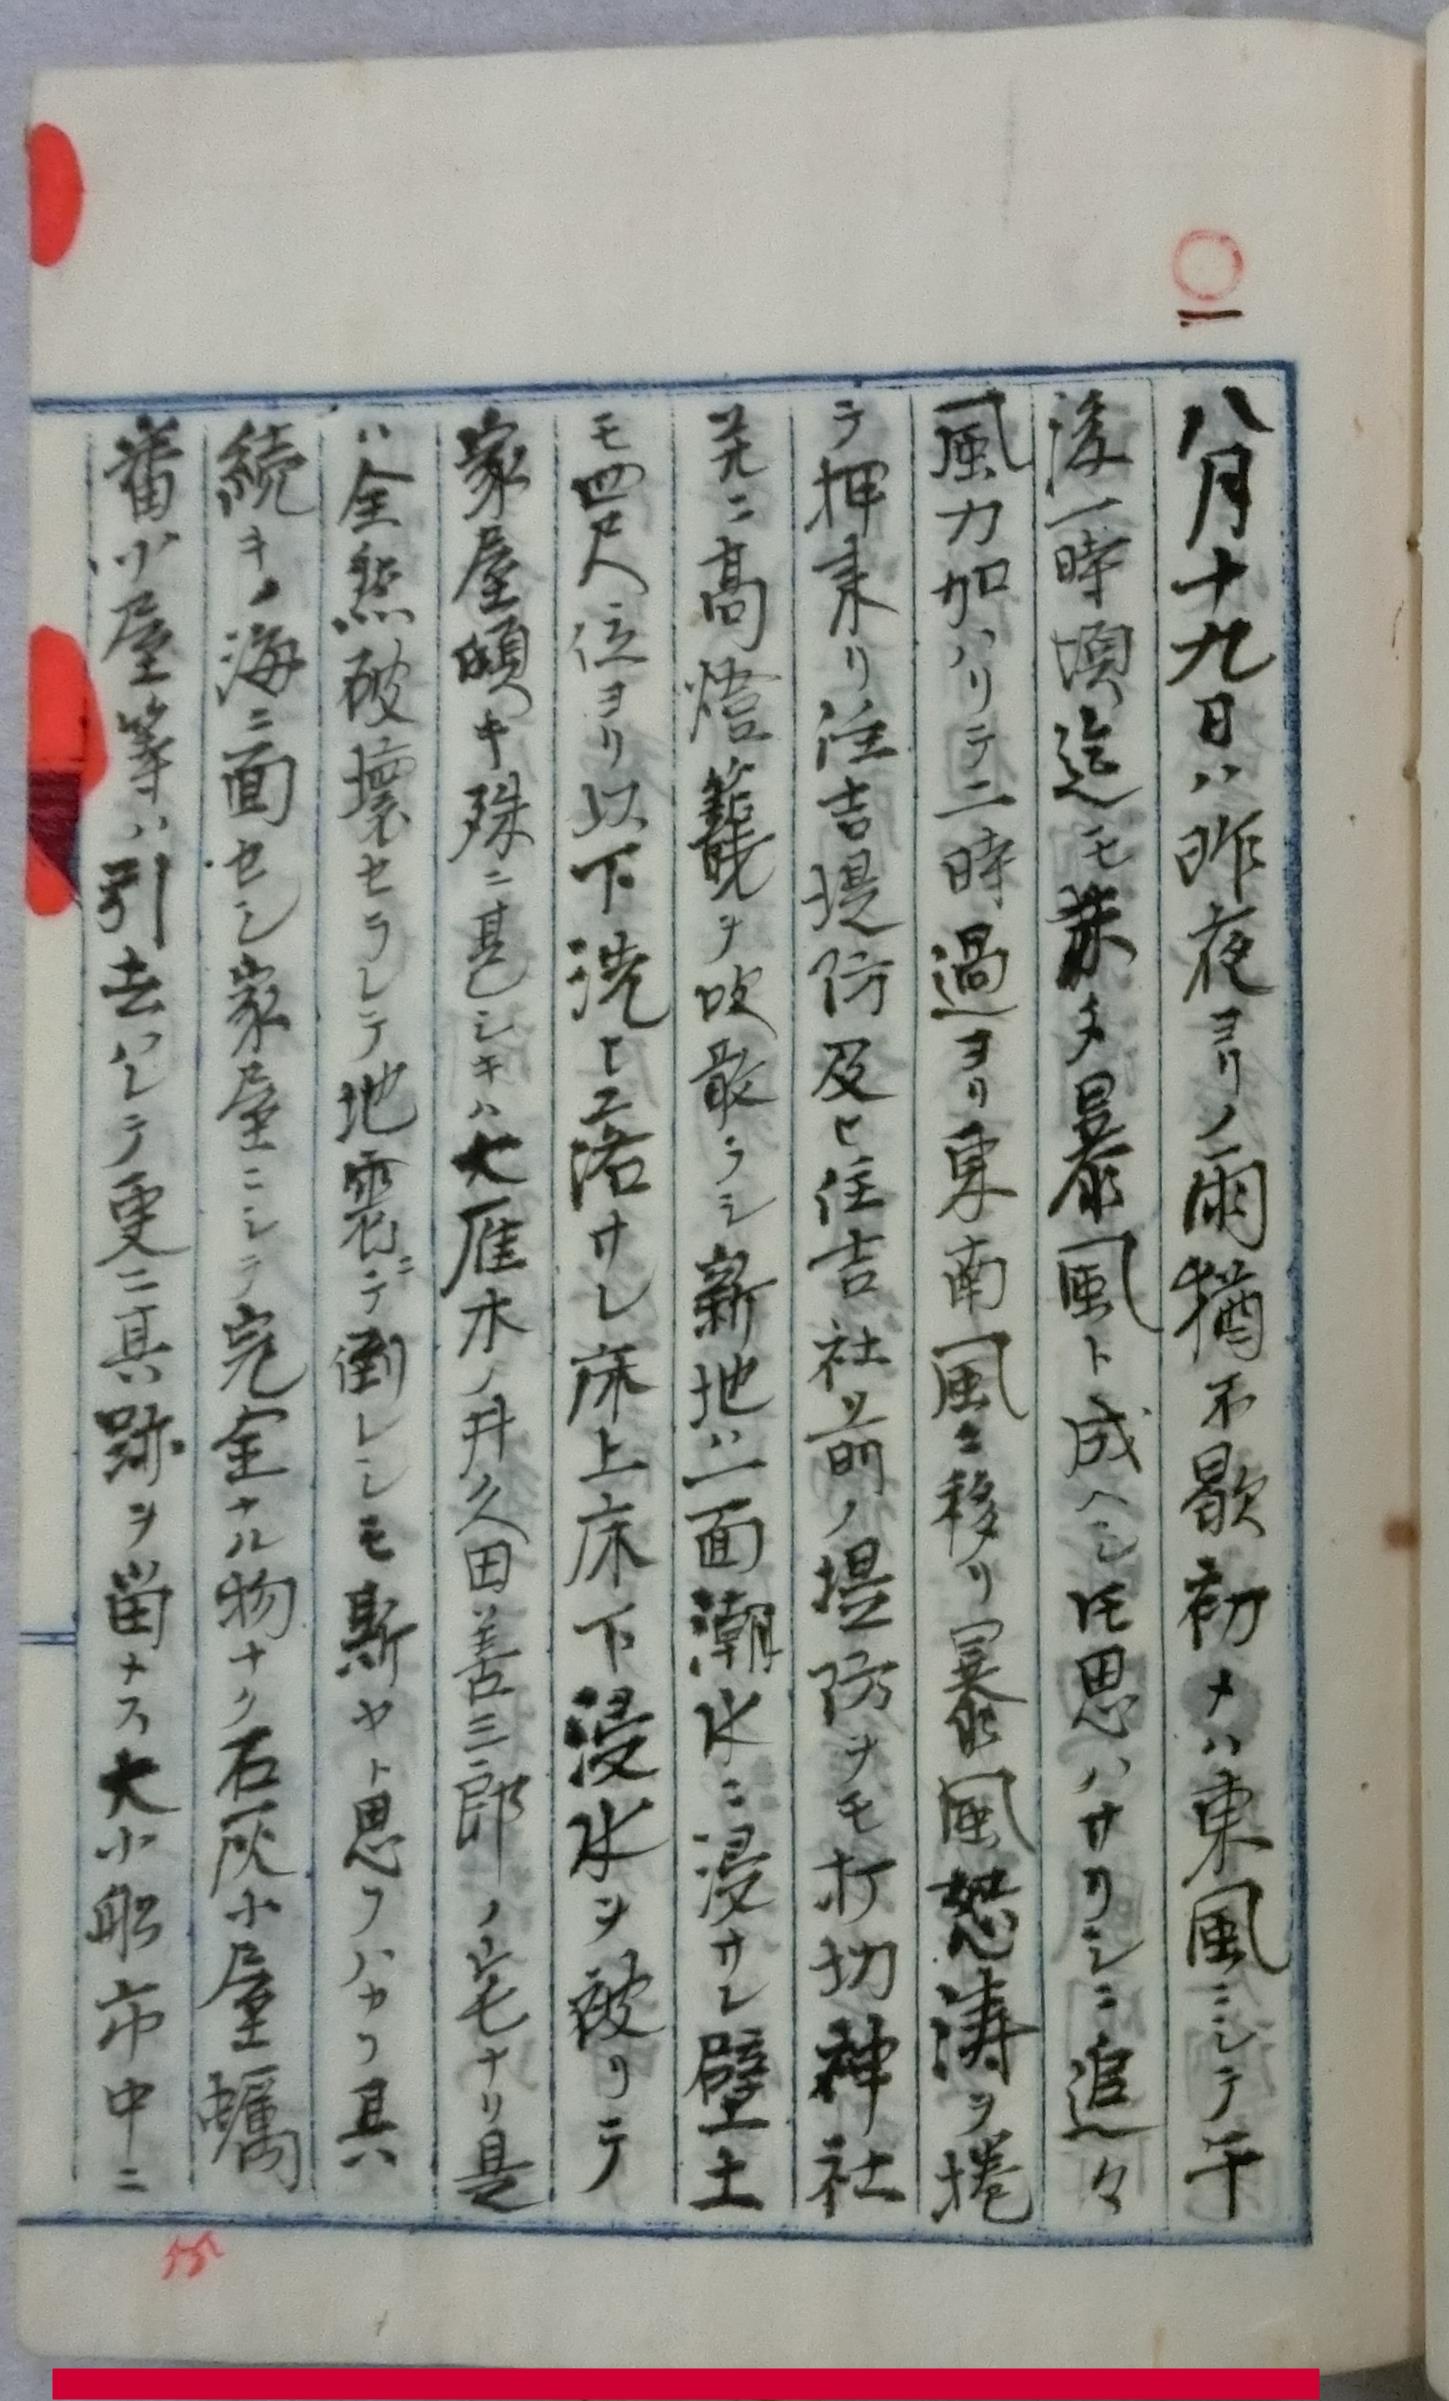 八月十九日ハ昨夜ヨリノ雨猶不歇初ナハ東風ニシテ午
後一時頃迄モ未タ暴風ト成ヘシ𪜈思ハサリシニ追々
風力加ハリテ二時過ヨリ東南風ニ移リ暴風怒涛ヲ捲
テ押来リ住吉堤防及ヒ住吉社ツ前ノ堤防ナモ打切神社
并ニ高燈籠ヲ吹散ラシ新地ハ一面潮水ニ浸サレ壁土
モ四尺位ヨリ以下洗ヒ落サレ床上床下浸水ヲ被リテ
家屋傾キ殊ニ甚シキハ大雁木ノ井久田善三郎ノ宅ナリ是
ハ全然破壊セラレテ地震ニテ倒レシモ斯ヤト思フハカリ其
続キノ海ニ面セシ家屋ニシテ完全ナル物ナク石灰小屋蠣
番小屋等ハ引去ハレテ更ニ其跡ヲ留ナス大小船市中ニ